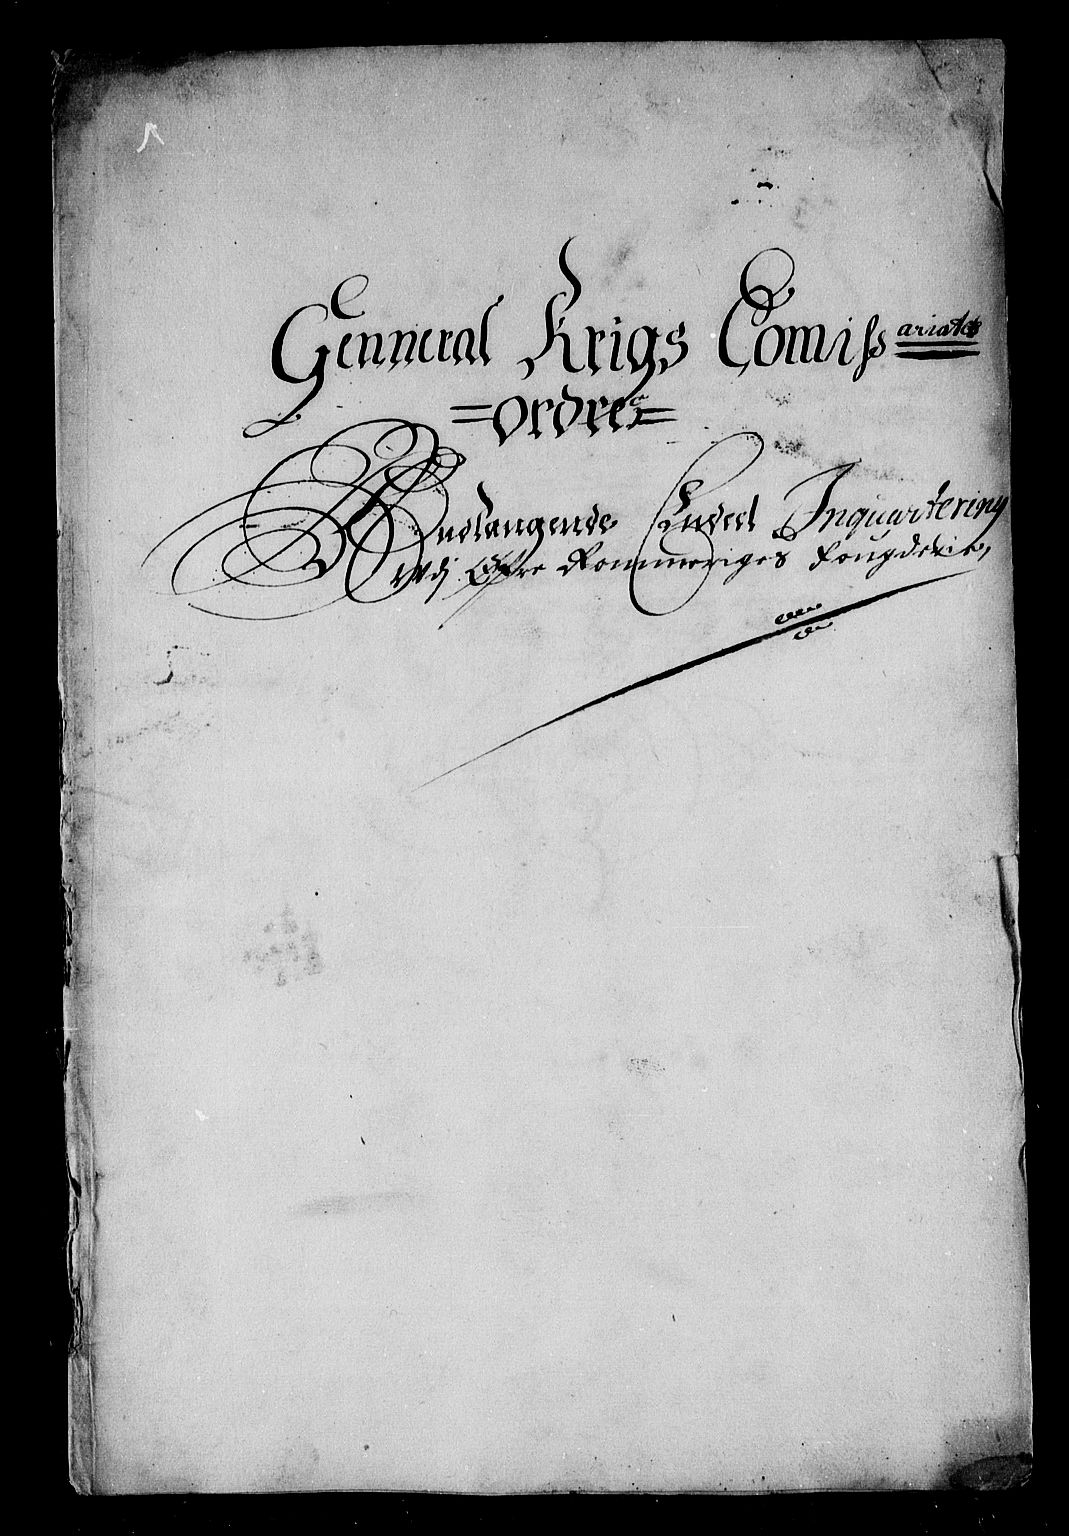 Genneral Krigs Comiss ariatets
=ordre=
Andlangende Endeel Inquartering
udj Øfre Rommeriges fougderie,